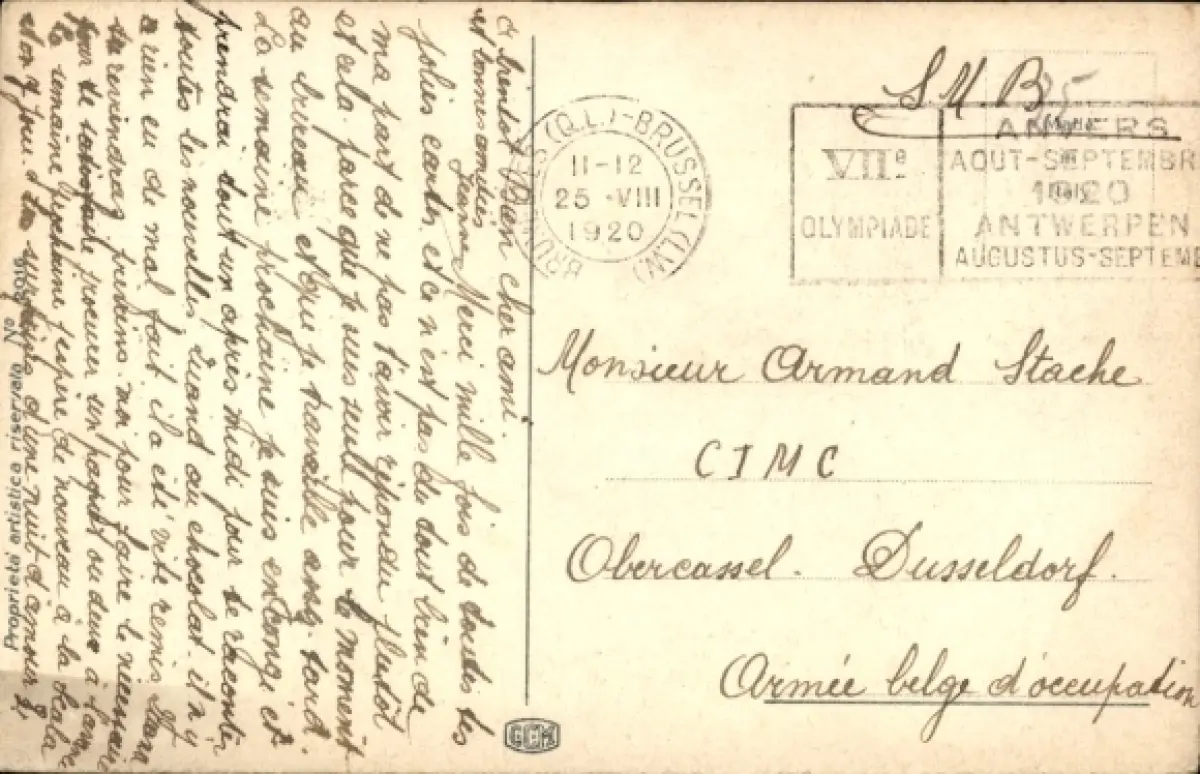 Bien cher ami.
Merci mille fois de toutes tes
jolies cartes, et ce n'est pas du tout bien de
ma part de ne pas t'avoir répondu plustôt
et cela parce que je suis seule pour le moment
au bureau et que je travaille assez tard.
La semaine prochaine je suis en congé et
prendrai tout un après midi pour te raconter
toutes les nouvelles. Quand au chocolat il n'y
a rien eu de mal fait il a été vite remis. Si
tu reviendrai préviens moi pour faire le nécessaire
pour te satisfaire
la semaine prochaine j'espère de nouveau à la Scala
et on y joue d'une nuit d'amour
A bientôt
et bonne amitiés
Jeanne
Proprietà artistica riservata
GCM
S.M.B
BRUSSEL
11-12
25 -VIII
1920
VIIe
OLYMPIADE
ANVERS
AOUT-SEPTEMBR
1920
ANTWERPEN
AUGUSTUS-SEPTEMB
Monsieur Armand Stache
CIMC
Obercassel. Dusseldorf.
Armée belge d'occupation